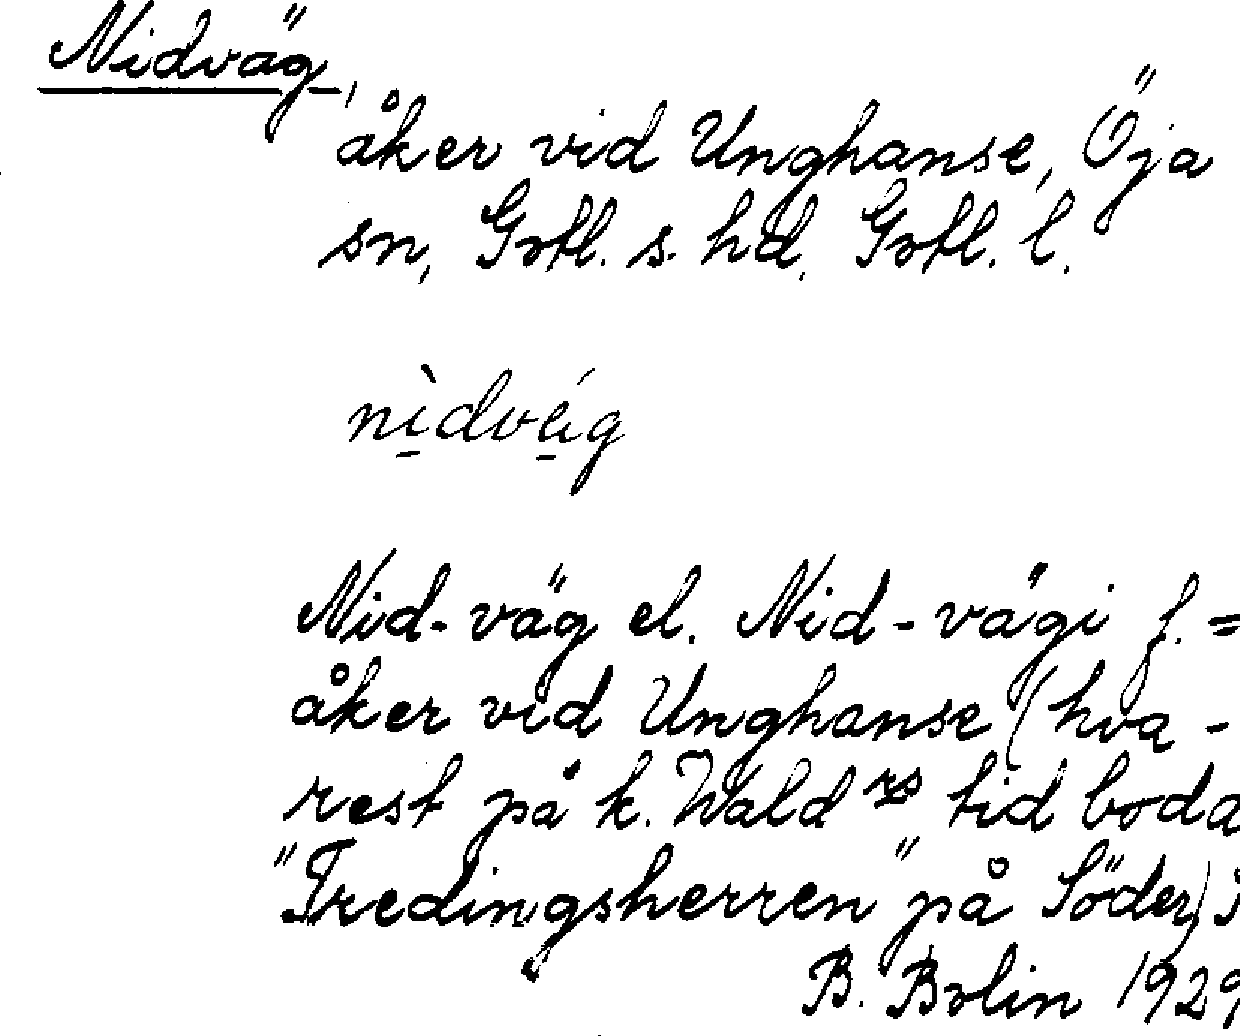 Nidväg,
åker vid Unghanse, Öja
sn, Gotl. s. hd. Gotl. l.
nìdvég
Nid-väg el. Nid-vägi f. =
åker vid Unghanse (hva-
rest på k. Wald rs tid boda
"Tredingsherren" på Söder)
B. Bolin 1929